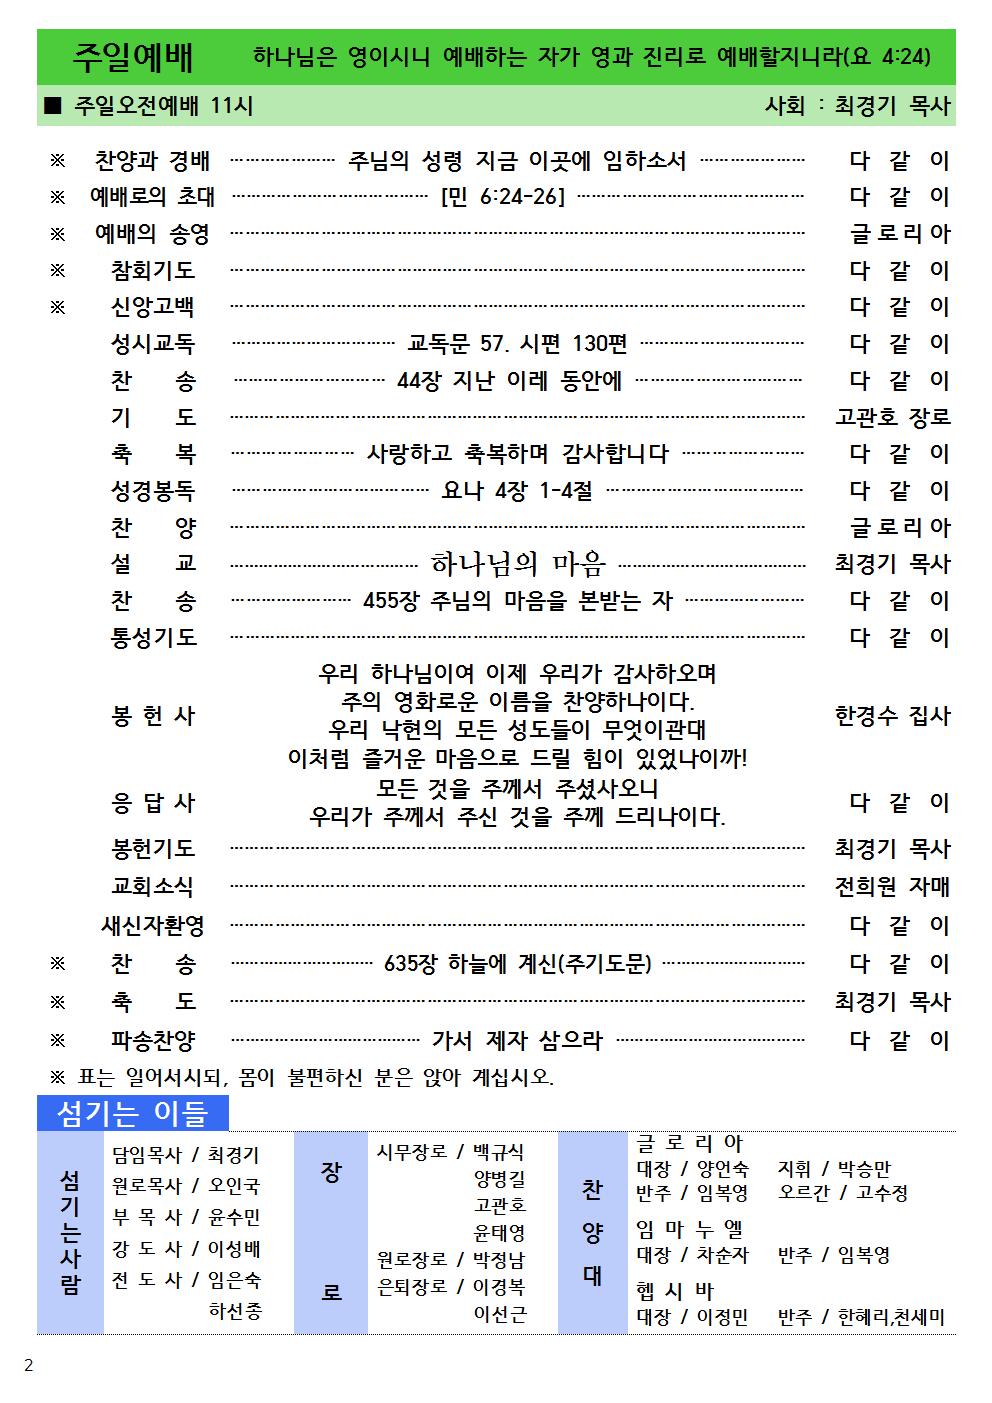 주일예배 하나님은 영이시니 예배하는 자가 영과 진리로 예배할지니라(요 4:24)
■ 주일오전예배 11시 사회 : 최경기 목사
※ 찬양과 경배 ··· 주님의 성령 지금 이곳에 임하소서 ··· 다 같 이
※ 예배로의 초대 ··· [민 6:24-26] ··· 다 같 이
※ 예배의 송영 ··· 글로리아
※ 참회기도 ··· 다 같 이
※ 신앙고백 ··· 다 같 이
성시교독 ··· 교독문 57. 시편 130편 ··· 다 같 이
찬 송 ··· 44장 지난 이레 동안에 ··· 다 같 이
기 도 ··· 고관호 장로
축 복 ··· 사랑하고 축복하며 감사합니다 ··· 다 같 이
성경봉독 ··· 요나 4장 1-4절 ··· 다 같 이
찬 양 ··· 글로리아
설 교 ··· 하나님의 마음 ··· 최경기 목사
찬 송 ··· 455장 주님의 마음을 본받는 자 ··· 다 같 이
통성기도 ··· 다 같 이
우리 하나님이여 이제 우리가 감사하오며
주의 영화로운 이름을 찬양하나이다.
봉 헌 사 한경수 집사
우리 낙현의 모든 성도들이 무엇이관대
이처럼 즐거운 마음으로 드릴 힘이 있었나이까!
모든 것을 주께서 주셨사오니
응 답 사 다 같 이
우리가 주께서 주신 것을 주께 드리나이다.
봉헌기도 ··· 최경기 목사
교회소식 ··· 전희원 자매
새신자환영 ··· 다 같 이
※ 찬 송 ··· 635장 하늘에 계신(주기도문) ··· 다 같 이
※ 축 도 ··· 최경기 목사
※ 파송찬양 ··· 가서 제자 삼으라 ··· 다 같 이
※ 표는 일어서시되, 몸이 불편하신 분은 앉아 계십시오.
섬기는 이들
섬기는사람
담임목사 / 최경기
원로목사 / 오인국
부 목 사 / 윤수민
강 도 사 / 이성배
전 도 사 / 임은숙
하선종
장 로
시무장로 / 백규식
양병길
고관호
윤태영
원로장로 / 박정남
은퇴장로 / 이경복
이선근
찬 양 대
글 로 리 아
대장 / 양언숙 지휘 / 박승만
반주 / 임복영 오르간 / 고수정
임 마 누 엘
대장 / 차순자 반주 / 임복영
헵 시 바
대장 / 이정민 반주 / 한혜리,천세미
2